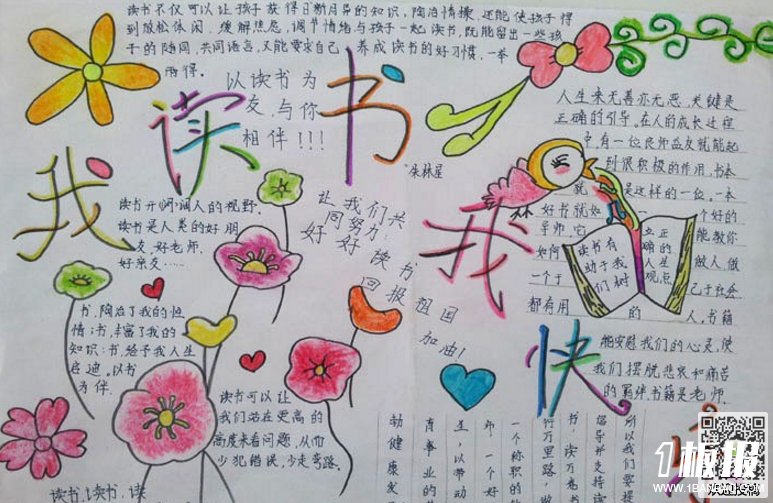 读书不仅可以让孩子获得日新月异的知识,陶冶情操,还能使孩子得
到放松休闲,缓解焦虑,调节情绪与孩子一起读书,既能留出一些孩
子的陪同,共同语言,又能要求自己,养成读书的好习惯,一举
两得。
我读书
以读书为
友,与你
相伴!!!
读书开阔人的视野。
读书是人类的好朋
友,好老师,
好亲友……
让我们共
同努力
好好读书
回报祖国
加油!
书,陶冶了我的性
情;书,丰富了我的
知识;书,给予我人生
启迪。以书
为伴。
读书可以让
我们站在更高的
高度来看问题,从而
少犯错误,少走弯路。
读书,读书,读
我快
人生来无善亦无恶,关键是
正确的引导。在人的成长过程
中,有一位良师益友就能起
到很积极的作用,书本
就是这样的一位。一本
好书就如个好的
导师,它能教你
如何做人,做
一个于己于社会
都有用的人,书籍
读书有
助于我
们树
立正
确的
人生
观点
能安慰我们的心灵,使
我们摆脱悲哀和痛苦
的羁绊书籍是老师.
所以我们要
倡导并支持
书,读万卷书
行万里路
一个称职的
师,一个好
生,以带动
育事业的
勃健康发
1板报
WWW.1BANBAO.COM